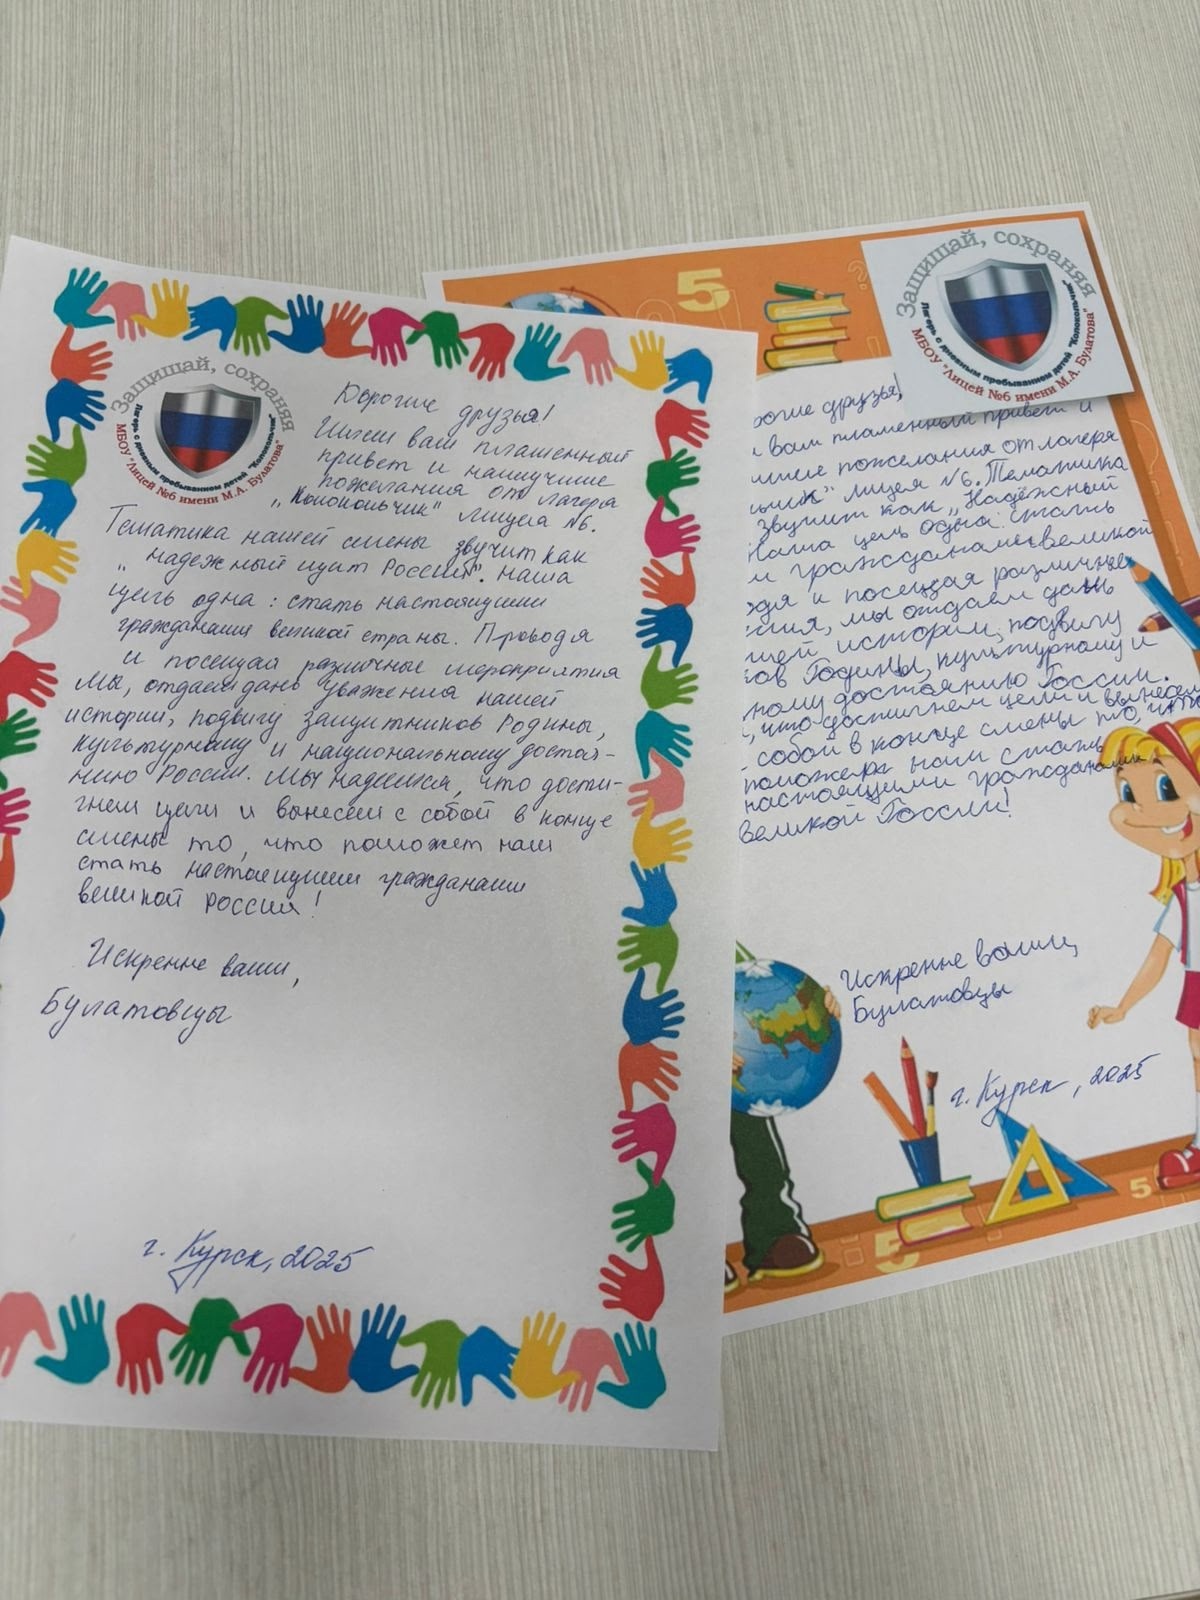 Защищай, сохраняя
Лагерь с дневным пребыванием детей "Колокольчик"
МБОУ "Лицей №6 имени М.А. Булатова"
Дорогие друзья!
Шлем вам пламенный
привет и наилучшие
пожелания от лагеря
„Колокольчик" лицея №6.
Тематика нашей смены звучит как
„надежный щит России". Наша
цель одна: стать настоящими
гражданами великой страны. Проводя
и посещая различные мероприятия
мы, отдаем дань уважения нашей
истории, подвигу защитников Родины,
культурному и национальному достоя-
нию России. Мы надеемся, что дости-
гнем цели и вынесем с собой в конце
смены то, что поможет нам
стать настоящими гражданами
великой России!
Искренне ваши,
Булатовцы
г. Курск, 2025
5
Защищай, сохраняя
Лагерь с дневным пребыванием детей "Колокольчик"
МБОУ "Лицей №6 имени М.А. Булатова"
рогие друзья!
вам пламенный привет и
пожелания от лагеря
лицея №6. Тематика
звучит как „Надёжный
Наша цель одна: стать
гражданами великой
и посещая различные
мы отдаем дань
истории, подвигу
Родины, культурному и
ному достоянию России.
что достигнем цели и вынесем
собой в конце смены то, что
поможет нам стать
настоящими гражданами
великой России!
Искренне ваши,
Булатовцы
г. Курск, 2025
5
5